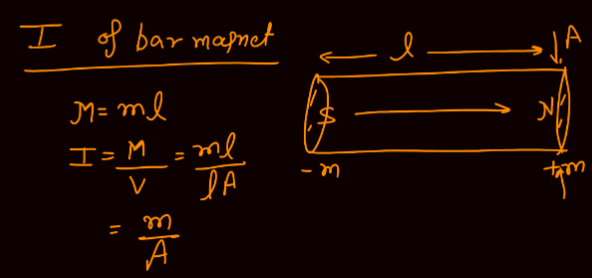 I of bar magnet
M = ml
I = M/V = ml/lA
= m/A
l
A
S
N
-m
+m